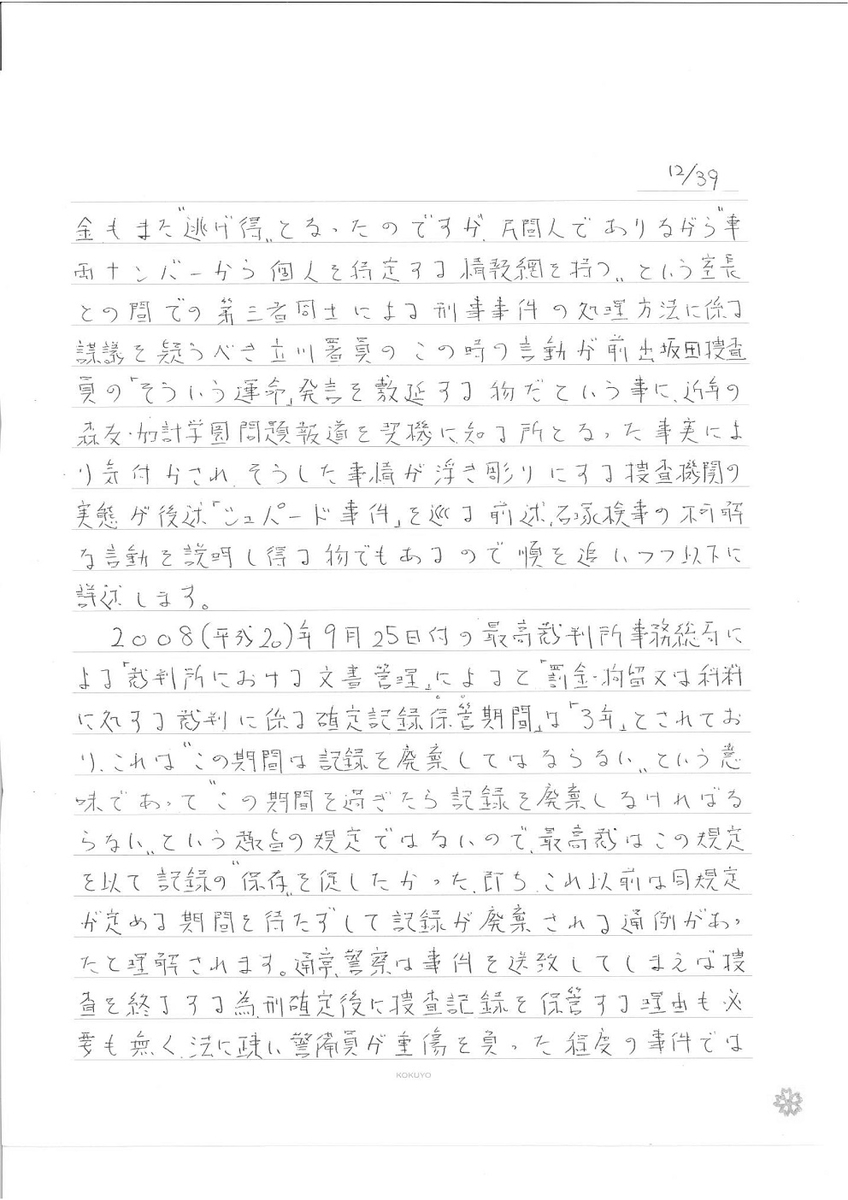 12/39
金もまた“逃げ得„となったのですが、民間人でありながら“車
両ナンバーから個人を特定する情報網を持つ„という室長
との間での第三者同士による刑事事件の処理方法に係る
謀議を疑うべき立川署員のこの時の言動が前出坂田捜査
員の「そういう運命」発言を敷延する物だという事に、近年の
森友・加計学園問題報道を契機に知る所となった事実によ
り気付かされ、そうした事情が浮き彫りにする捜査機関の
実態が後述「シェパード事件」を巡る前述、石冢検事の不可解
な言動を説明し得る物でもあるので順を追いつつ以下に
詳述します。
2008(平成20)年9月25日付の最高裁判所事務総局に
よる「裁判所における文書管理」によると「罰金・拘留又は科料
に処する裁判に係る確定記録保管期間」は「3年」とされてお
り、これは“この期間は記録を廃棄してはならない„という意
味であって“この期間を過ぎたら記録を廃棄しなければな
らない„という趣旨の規定ではないので、最高裁はこの規定
を以て記録の“保存„を促したかった、即ち、これ以前は同規定
が定める期間を待たずして記録が廃棄される通例があっ
たと理解されます。通常、警察は事件を送致してしまえば捜
査を終了する為、刑確定後に捜査記録を保管する理由も必
要も無く、法に疎い警備員が重傷を負った程度の事件では
KOKUYO